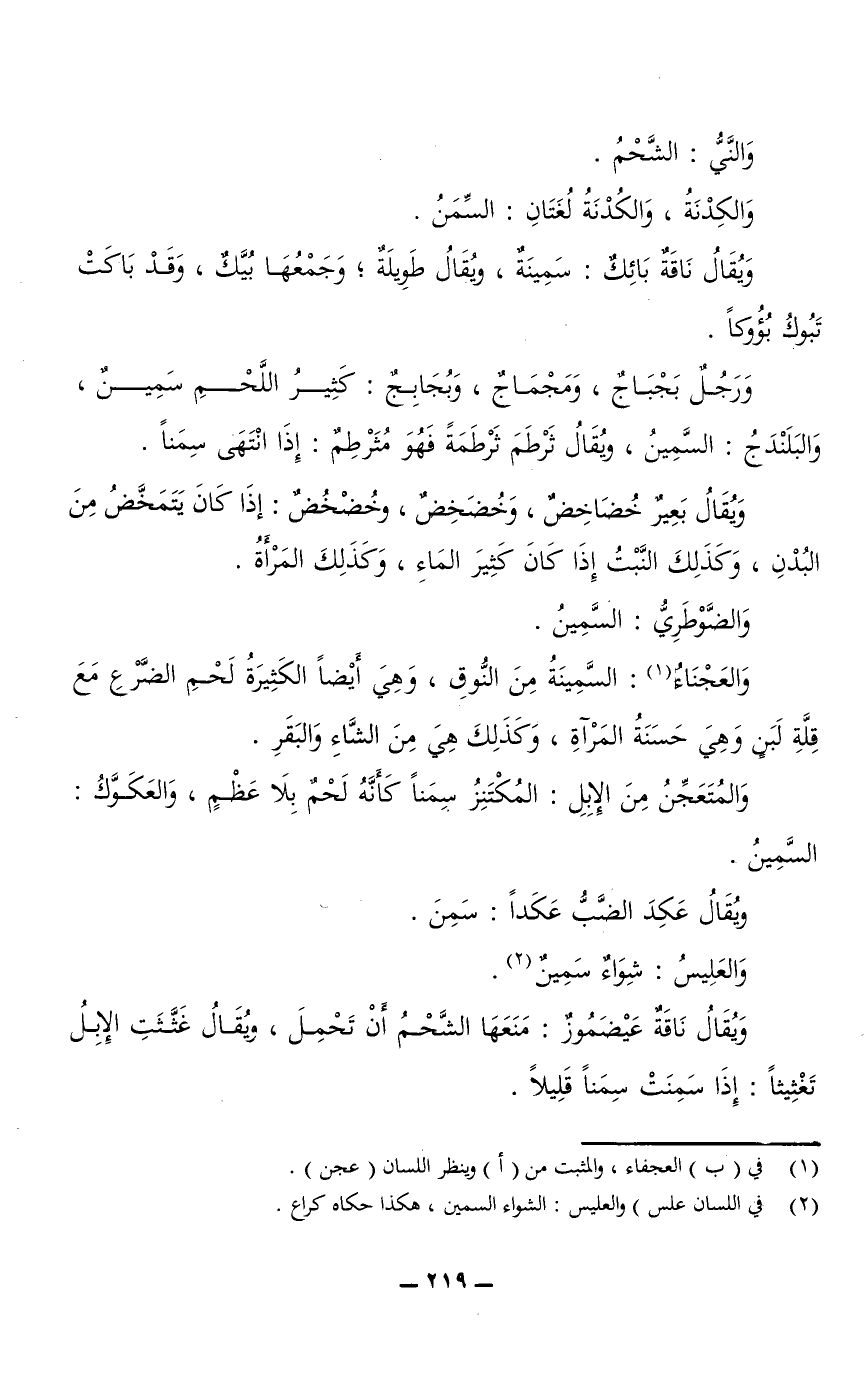 وَالنَّيُّ : الشَّحْمُ .
وَالكِدْنَةُ ، وَالكُدْنَةُ لُغَتَانِ : السِّمَنُ .
وَيُقَالُ نَاقَةٌ بَائِكٌ : سَمِينَةٌ ، ويُقَالُ طَوِيلَةٌ ؛ وَجَمْعُهَا بُيَّكٌ ، وَقَدْ بَاكَتْ
تَبُوكُ بُؤُوكاً .
وَرَجُلٌ بَجْبَاجٌ ، وَمَجْمَاجٌ ، وَبُجَابِجٌ : كَثِيرُ اللَّحْمِ سَمِينٌ ،
وَالبَلَنْدَجُ : السَّمِينُ ، ويُقَالُ ثَرْطَمَ ثَرْطَمَةً فَهُوَ مُثَرْطِمٌ : إِذَا انْتَهَى سِمَناً .
وَيُقَالُ بَعِيرٌ خُضَاخِضٌ ، وَخُضَخِضٌ ، وخُضْخُضٌ : إِذَا كَانَ يَتَمَخَّضُ مِنَ
البُدْنِ ، وَكَذَلِكَ النَّبْتُ إِذَا كَانَ كَثِيرَ المَاءِ ، وَكَذَلِكَ المَرْأَةُ .
وَالضَّوْطَرِيُّ : السَّمِينُ .
وَالعَجْنَاءُ(١) : السَّمِينَةُ مِنَ النُّوقِ ، وَهِيَ أَيْضاً الكَثِيرَةُ لَحْمِ الضَّرْعِ مَعَ
قِلَّةِ لَبَنٍ وَهِيَ حَسَنَةُ المَرْآةِ ، وَكَذَلِكَ هِيَ مِنَ الشَّاءِ وَالبَقَرِ .
وَالمُتَعَجِّنُ مِنَ الإِبِلِ : المُكْتَنِزُ سِمَناً كَأَنَّهُ لَحْمٌ بِلَا عَظْمٍ ، وَالعَكَوَّكُ :
السَّمِينُ .
ويُقَالُ عَكِدَ الضَّبُّ عَكَداً : سَمِنَ .
وَالعَلِيسُ : شِوَاءٌ سَمِينٌ(٢) .
وَيُقَالُ نَاقَةٌ عَيْضَمُوزٌ : مَنَعَهَا الشَّحْمُ أَنْ تَحْمِلَ ، ويُقَالُ غَثَّثَتِ الإِبِلُ
تَغْثِيثاً : إِذَا سَمِنَتْ سِمَناً قَلِيلاً .
(١) في ( ب ) العجفاء ، والمثبت من ( أ ) وينظر اللسان ( عجن ) .
(٢) في اللسان علس ) والعليس : الشواء السمين ، هكذا حكاه كراع .
— ٢١٩ —